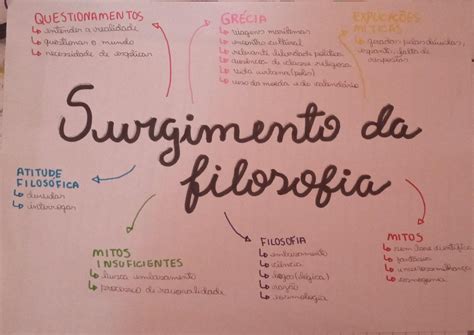 QUESTIONAMENTOS
↳ entender a realidade
↳ questionar o mundo
↳ necessidade de explicar
GRÉCIA
↳ viagens marítimas
↳ encontro cultural
↳ relevante liberdade política
↳ ausência de classe religiosa
↳ vida urbana (pólis)
↳ uso da moeda e do calendário
EXPLICAÇÕES
MÍTICAS
↳ geradas pelas dúvidas,
falta de
respostas
Surgimento da
filosofia
ATITUDE
FILOSÓFICA
↳ duvidar
↳ interrogar
MITOS
INSUFICIENTES
↳ busca embasamento
↳ processo de racionalidade
FILOSOFIA
↳ embasamento
↳ ciência
↳ logos (lógica)
↳ razão
↳ cosmologia
MITOS
↳ sem base científica
↳ fantasia
↳ cosmogonia